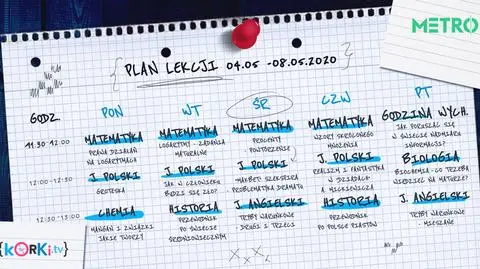 METRO
{PLAN LEKCJI 04.05 -08.05.2020}
GODZ. PON WT ŚR CZW PT
11:30-12:00 MATEMATYKA MATEMATYKA MATEMATYKA MATEMATYKA GODZINA WYCH.
PRAWA DZIAŁAŃ LOGARYTMY - ZADANIA PROCENTY WZORY SKRÓCONEGO JAK PORUSZAĆ SIĘ
NA LOGARYTMACH MATURALNE POWTÓRZENIE MNOŻENIA W ŚWIECIE NADMIARU
INFORMACJI?
12:00-12:30 J. POLSKI J. POLSKI J. POLSKI J. POLSKI BIOLOGIA
GROTESKA JAK W CZŁOWIEKU MAKBET SZEKSPIRA REALIZM I FANTASTYKA BIOCHEMIA - CO TRZEBA
RODZI SIĘ ZŁO? PROBLEMATYKA DRAMATU W DZIADACH WIEDZIEĆ NA MATURZE?
A. MICKIEWICZA
12:30-13:00 CHEMIA HISTORIA J. ANGIELSKI HISTORIA J. ANGIELSKI
MANGAN I ZWIĄZKI PRZEWODNIK TRYBY WARUNKOWE PRZEWODNIK TRYBY WARUNKOWE
JAKIE TWORZY PO ŚWIECIE - DRUGI I TRZECI PO POLSCE PIASTÓW - MIESZANE
ŚREDNIOWIECZNYM
{KORKi.tv}
X X X